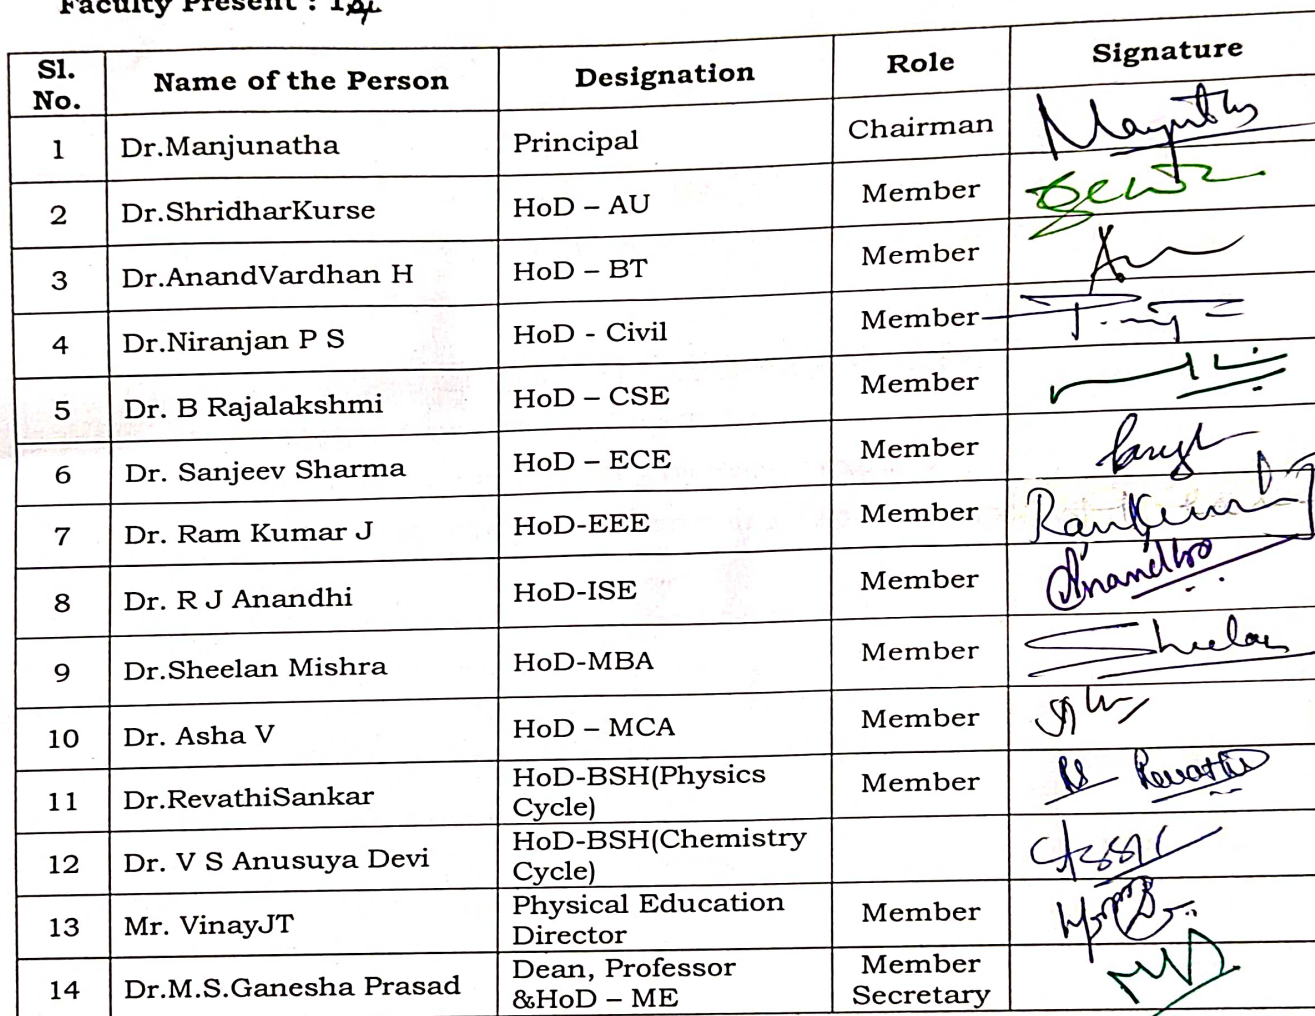 Faculty Present :
Sl. No. Name of the Person Designation Role Signature
1 Dr.Manjunatha Principal Chairman
2 Dr.ShridharKurse HoD – AU Member
3 Dr.AnandVardhan H HoD – BT Member
4 Dr.Niranjan P S HoD - Civil Member
5 Dr. B Rajalakshmi HoD – CSE Member
6 Dr. Sanjeev Sharma HoD – ECE Member
7 Dr. Ram Kumar J HoD-EEE Member
8 Dr. R J Anandhi HoD-ISE Member
9 Dr.Sheelan Mishra HoD-MBA Member Sheelan
10 Dr. Asha V HoD – MCA Member
11 Dr.RevathiSankar HoD-BSH(Physics Cycle) Member Revathi
12 Dr. V S Anusuya Devi HoD-BSH(Chemistry Cycle)
13 Mr. VinayJT Physical Education Director Member
14 Dr.M.S.Ganesha Prasad Dean, Professor &HoD – ME Member Secretary